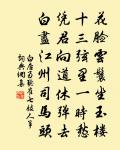 花臉雲鬟坐玉樓
十三弦裏一時愁
憑君向道休彈去
白盡江州司馬頭
白居易聽崔七妓人箏
詞典網集